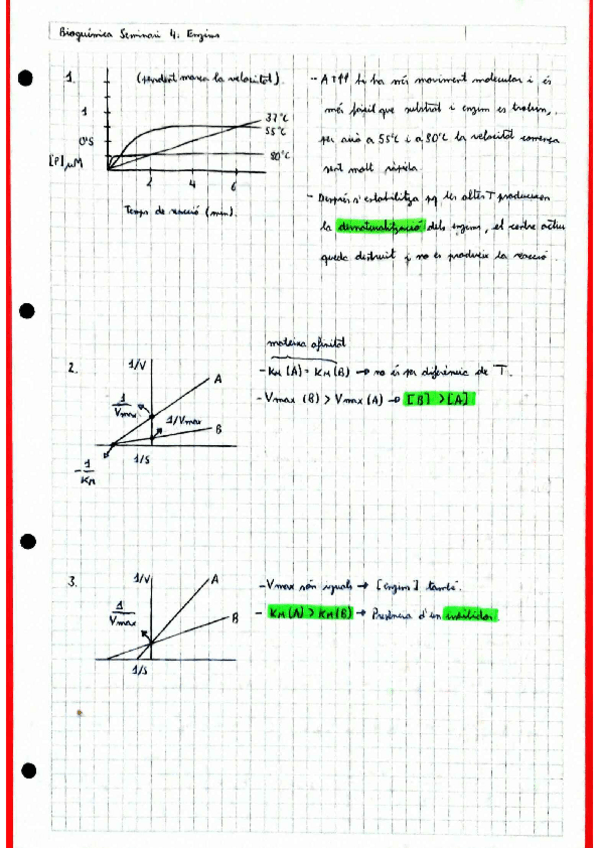 Bioquímica Seminari 4: Enzims
1.
(pendent marca la velocitat).
1
0'5
[P] µM
37ºC
55ºC
80ºC
2 4 6
Temps de reacció (min).
- A T↑↑ hi ha més moviment molecular i és
més fàcil que substrat i enzim es trobin,
per això a 55ºC i a 80ºC la velocitat comença
sent molt ràpida.
- Després s'estabilitza pq les altes T produeixen
la desnaturalització dels enzims, el centre actiu
queda destruit i no es produeix la reacció.
2.
1/V
A
1/Vmax
1/Vmax
B
1/S
-1/KM
mateixa afinitat
- KM (A) = KM (B) → no és per diferència de T.
- Vmax (B) > Vmax (A) → [B] > [A]
3.
1/V
A
1/Vmax
B
1/S
- Vmax són iguals → [enzim] també.
- KM (A) > KM (B) → Presència d'un inhibidor.